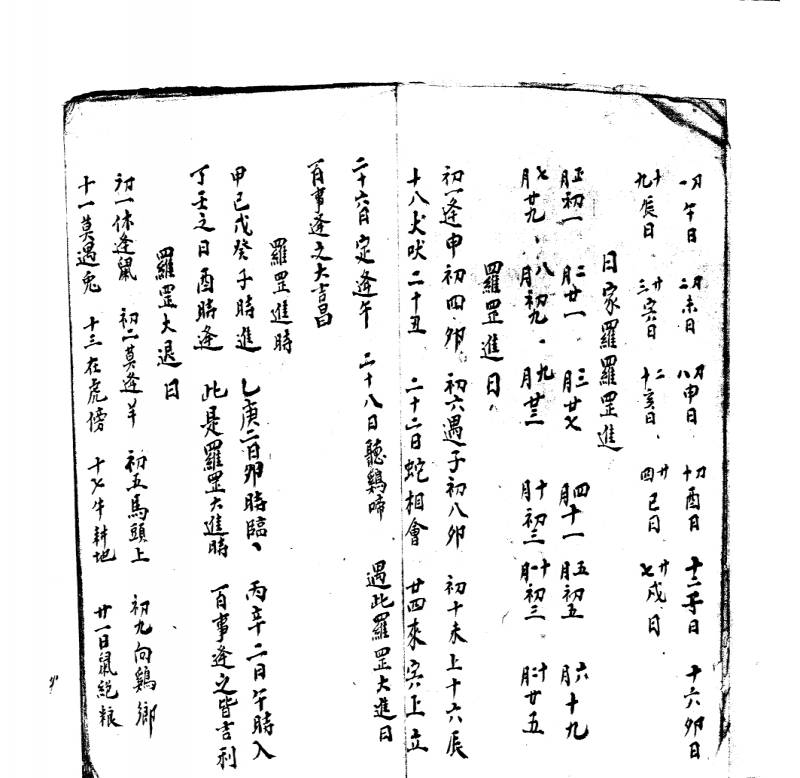 初一午日 初二未日 初八申日 初十酉日 十二子日 十六卯日
十九辰日、廿三寅日 二十亥日、廿四巳日 廿七戌日
日家羅羅罡進
正月初一 二月廿一、三月廿七 四月十一 五月初五 六月十九
七月廿九、八月初九、九月廿三 十月初三 十一月初三 十二月廿五
羅罡進日、
初一逢申初四卯 初六遇子初八卯 初十未上十六辰
十八犬吠二十丑 二十二日蛇相會 廿四來寅上立
二十六日定逢午 二十八日聽鷄啼 遇此羅罡大進日
百事逢之大吉昌
羅罡進時
甲己戊癸子時進 乙庚二日卯時臨、丙辛二日午時入
丁壬之日酉時逢 此是羅罡大進時 百事逢之皆吉利
羅罡大退日
初一休逢鼠 初二莫逢羊 初五馬頭上 初九向鷄鄉
十一莫遇兎 十三在虎傍 十七牛耕地 廿一日鼠絕粮